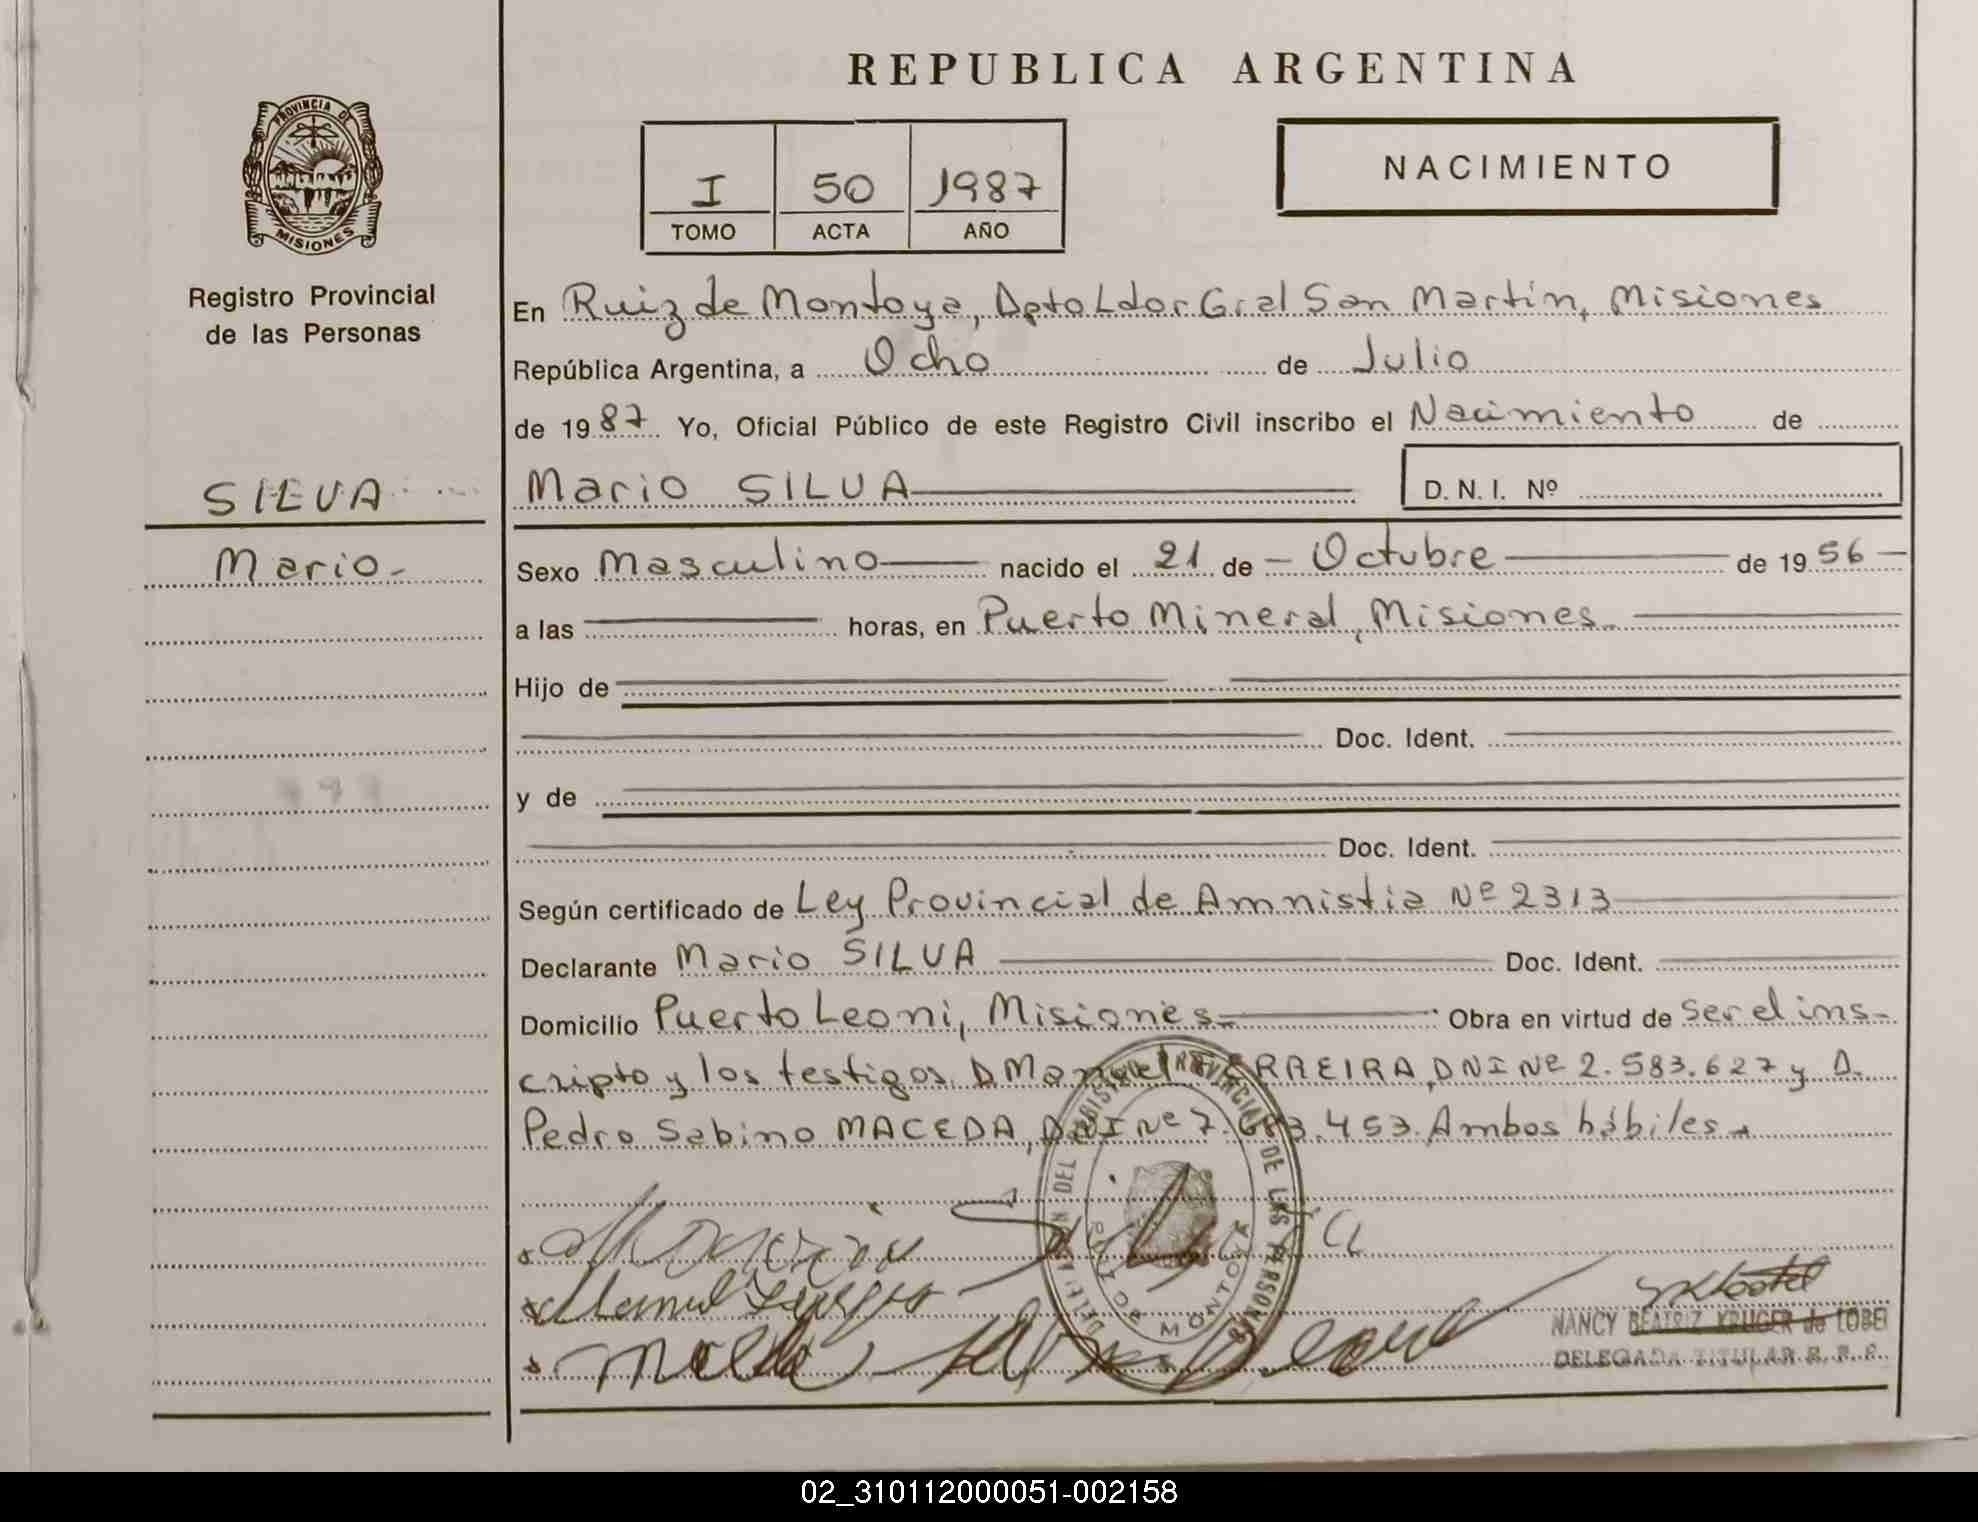 REPUBLICA ARGENTINA
PROVINCIA DE
MISIONES
Registro Provincial
de las Personas
I 50 1987
TOMO ACTA AÑO
NACIMIENTO
SILVA
Mario -
En Ruiz de Montoya, Dpto Ldor Gral San Martín, Misiones
República Argentina, a Ocho de Julio
de 1987. Yo, Oficial Público de este Registro Civil inscribo el Nacimiento de
Mario SILVA D. N. I. Nº
Sexo Masculino nacido el 21 de - Octubre de 1956 -
a las horas, en Puerto Mineral, Misiones.
Hijo de
Doc. Ident.
y de
Doc. Ident.
Según certificado de Ley Provincial de Amnistia Nº 2313
Declarante Mario SILVA Doc. Ident.
Domicilio Puerto Leoni, Misiones. Obra en virtud de ser el ins-
cripto y los testigos D Manuel FERREIRA, DNI Nº 2.583.627 y D.
Pedro Sabino MACEDA, DNI Nº 7.683.453. Ambos hábiles.
DELEGACION DEL REGISTRO PROVINCIAL DE LAS PERSONAS
RUIZ DE MONTOYA
NANCY BEATRIZ KRUGER de LOBE
DELEGADA TITULAR R. P. P.
02_310112000051-002158